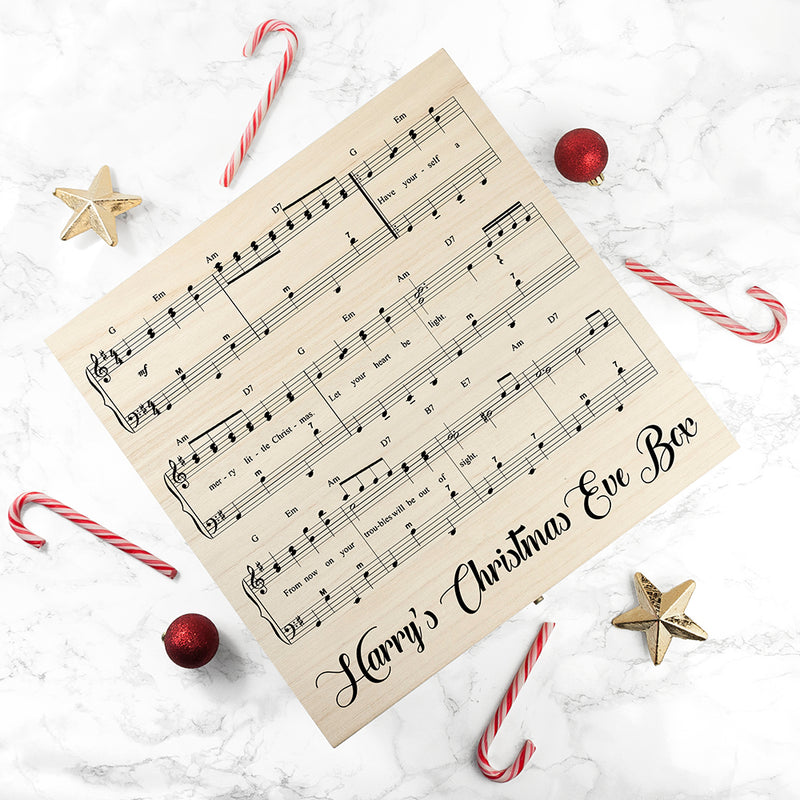 G Em Am D7 G Em
mf Have your - self a
M m m 7
Am D7 G Em Am D7
mer - ry lit - tle Christ - mas. Let your heart be light.
m 7 M m m 7
G Em Am D7 B7 E7 Am D7
From now on your troubles will be out of sight.
M m m 7 7 m 7
Harry's Christmas Eve Box